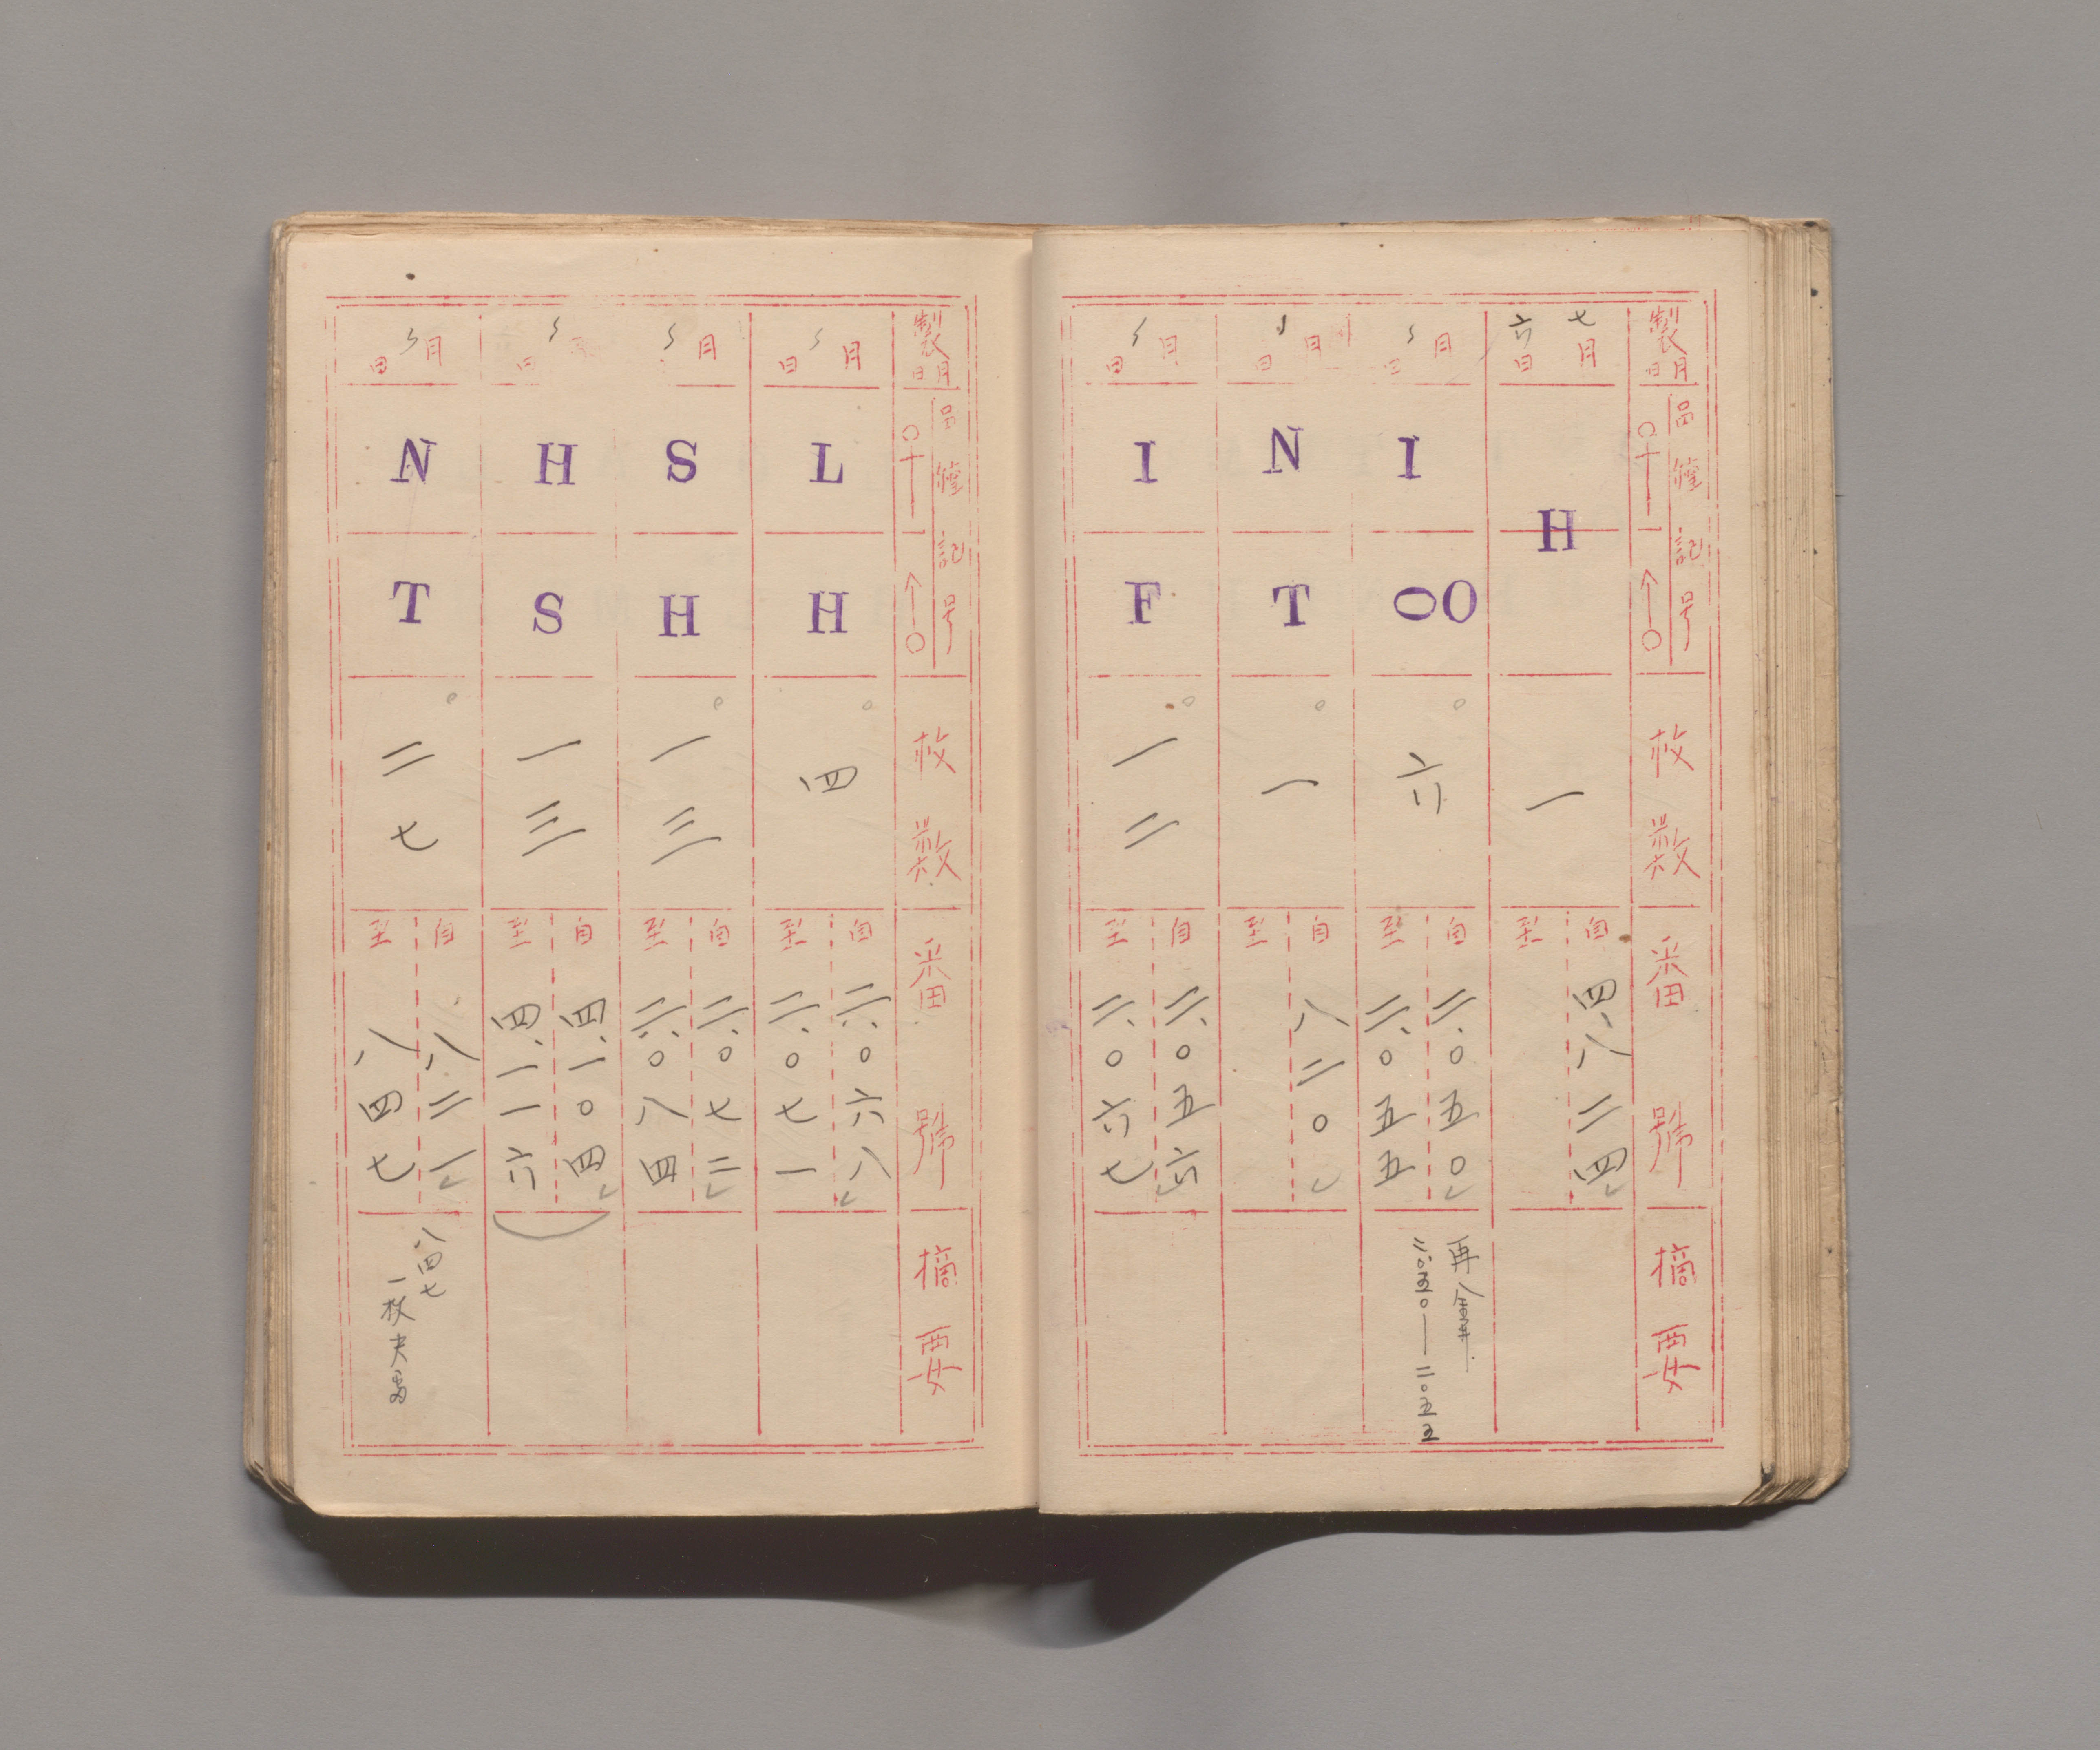 製月日
品種記号
枚数
番號
摘要
七月六日
H
一
自 四、八二四
至
月日
I
OO
六
自 二、〇五〇
至 二、〇五五
再
二、〇五〇——二〇五五
月日
N
T
一
自 八二〇
至
月日
I
F
一二
自 二、〇五六
至 二、〇六七
製月日
品種記号
枚数
番號
摘要
月日
L
H
四
自 二、〇六八
至 二、〇七一
月
S
H
一三
自 二、〇七二
至 二、〇八四
日
H
S
一三
自 四、一〇四
至 四、一一六
月日
N
T
二七
自 八二一
至 八四七
八四七
一枚